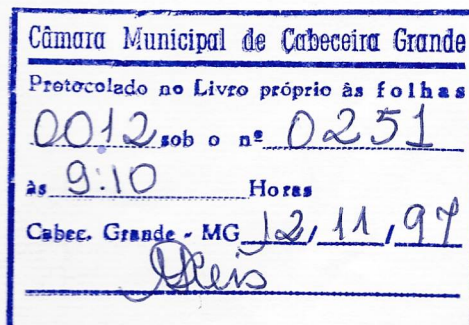 Câmara Municipal de Cabeceira Grande
Protocolado no Livro próprio às folhas
0012 sob o nº 0251
às 9:10 Horas
Cabec. Grande - MG 12, 11, 97